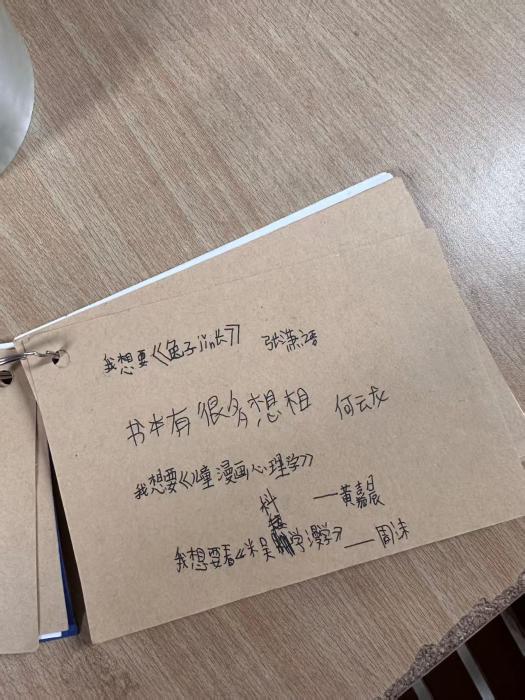 我想要《兔子jin长》 张潇语
书本有很多想相 何云龙
我想要《儿童漫画心理学》
——黄嘉晨
科
我想要看《米吴学漫学》——周沫